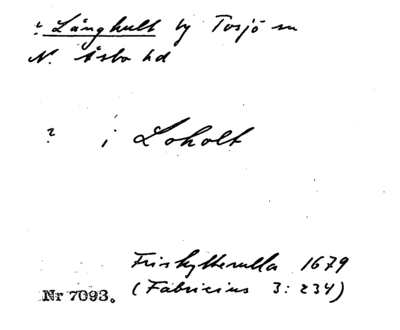 ? Långhult by Tosjö sn
N. Åsbo hd
? i Loholt
Friskytterulla 1679
(Fabricius 3:234)
Nr 7093.